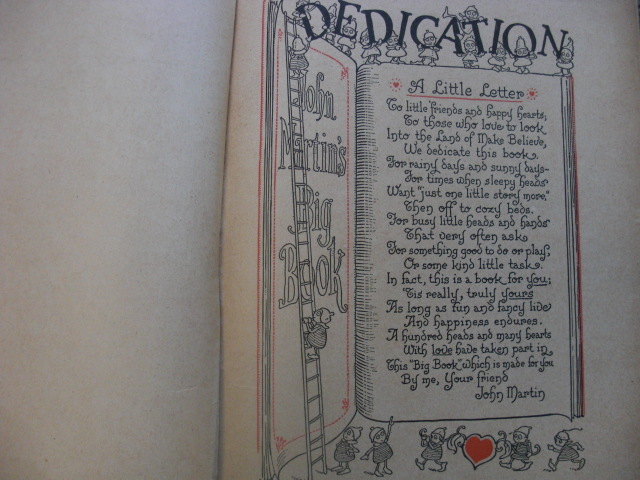 DEDICATION
John
Martin's
Big
Book
A Little Letter
To little friends and happy hearts,
To those who love to look
Into the Land of Make Believe,
We dedicate this book.
For rainy days and sunny days-
For times when sleepy heads
Want "just one little story more,"
Then off to cozy beds.
For busy little heads and hands
That very often ask
For something good to do or play,
Or some kind little task.
In fact, this is a book for you;
'Tis really, truly yours
As long as fun and fancy live
And happiness endures.
A hundred heads and many hearts
With love have taken part in
This "Big Book" which is made for you
By me, Your friend
John Martin